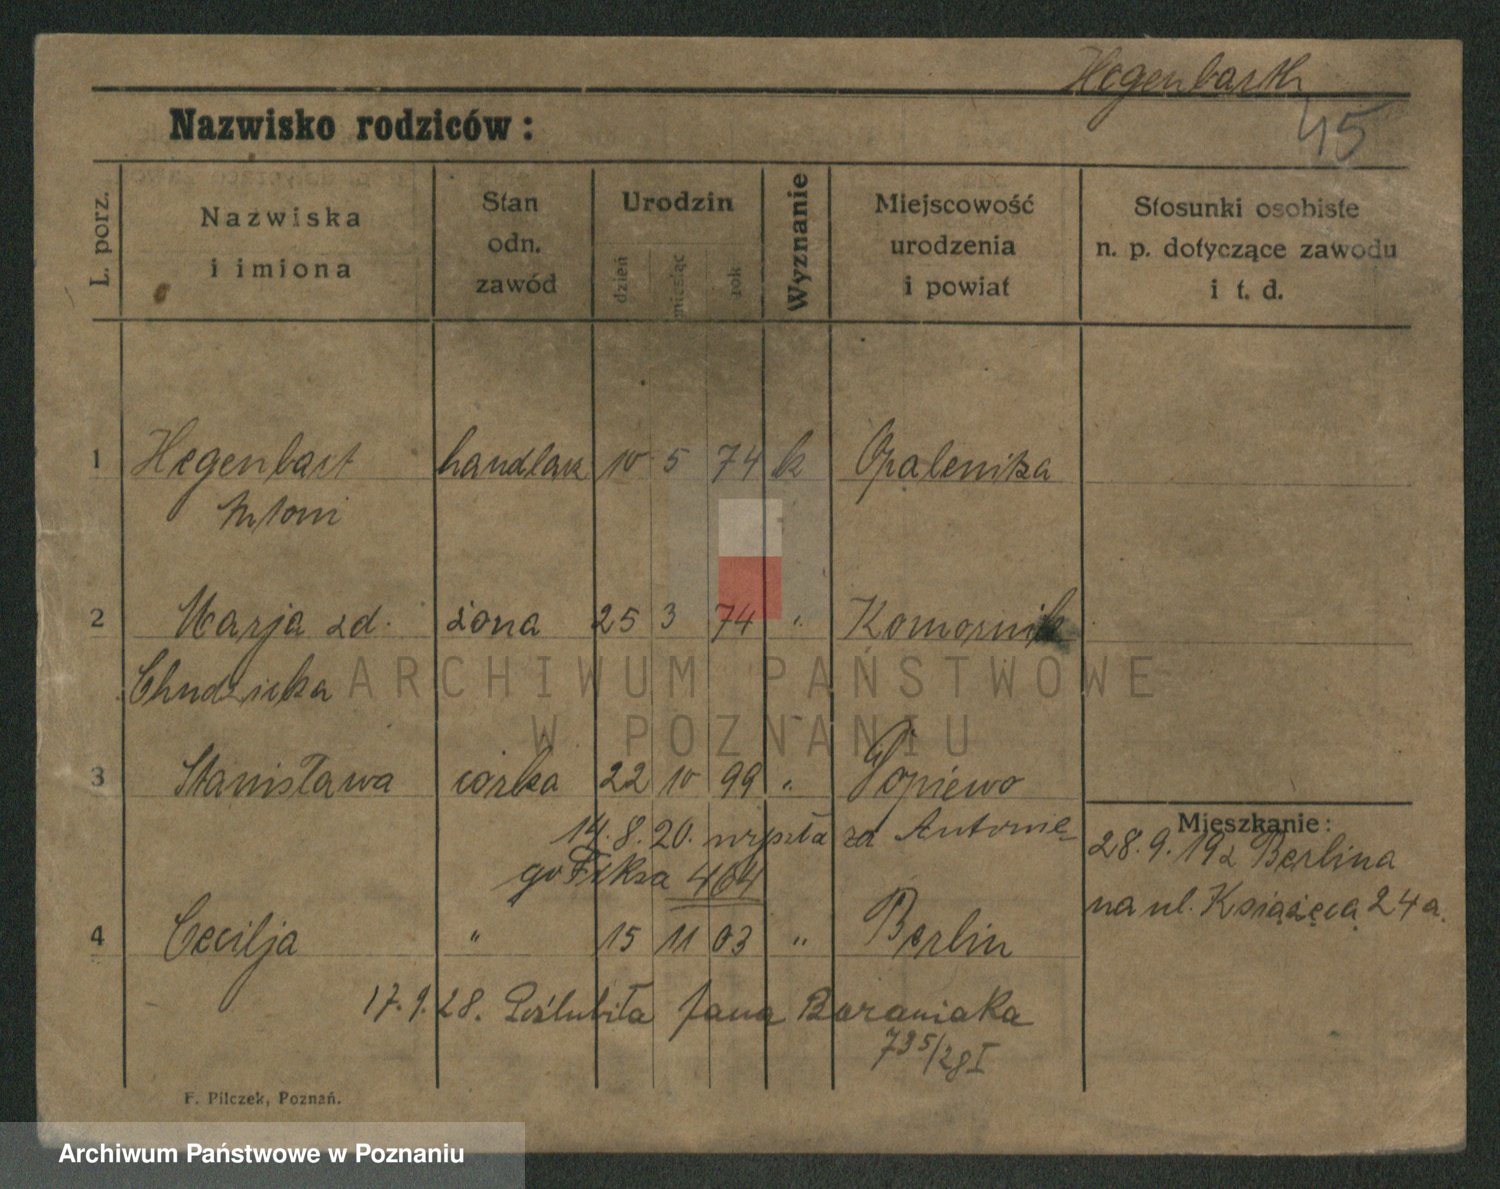 Hegenbarth
45
Nazwisko rodziców:
L. porz.
Nazwiska
i imiona
Stan
odn.
zawód
Urodzin
dzień
miesiąc
rok
Wyznanie
Miejscowość
urodzenia
i powiat
Stosunki osobiste
n. p. dotyczące zawodu
i t. d.
1 Hegenbart handlarz 10 5 74 k Opalenitza
Antoni
2 Marja zd. żona 25 3 74 " Komornik
Chudzicka
ARCHIWUM PAŃSTWOWE
W POZNANIU
3 Stanisława córka 22 10 99 " Dopiewo
14.8.20. wyszła za Antonie-
go 464
Mieszkanie:
28.9.19 z Berlina
na ul. Książęcą 24a.
4 Cecilja " 15 11 03 " Berlin
17.9.28. Poślubiła Jana Baraniaka
735/28 I
F. Pilczek, Poznań.
Archiwum Państwowe w Poznaniu